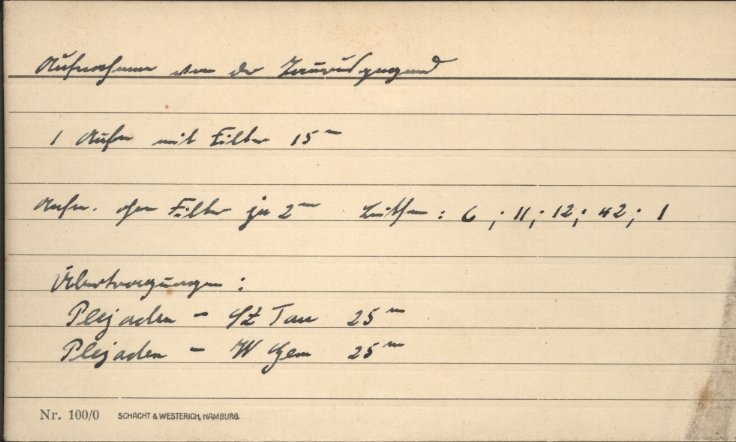 Aufnahmen von der Taurusgegend
1 Aufn mit Filter 15ᵐ
Aufn. ohne Filter zu 2ᵐ : 6 ; 11 ; 12 ; 42 ; 1
Übertragungen :
Plejaden – SZ Tau 25ᵐ
Plejaden – W Gem 25ᵐ
Nr. 100/0 SCHACHT & WESTERICH, HAMBURG